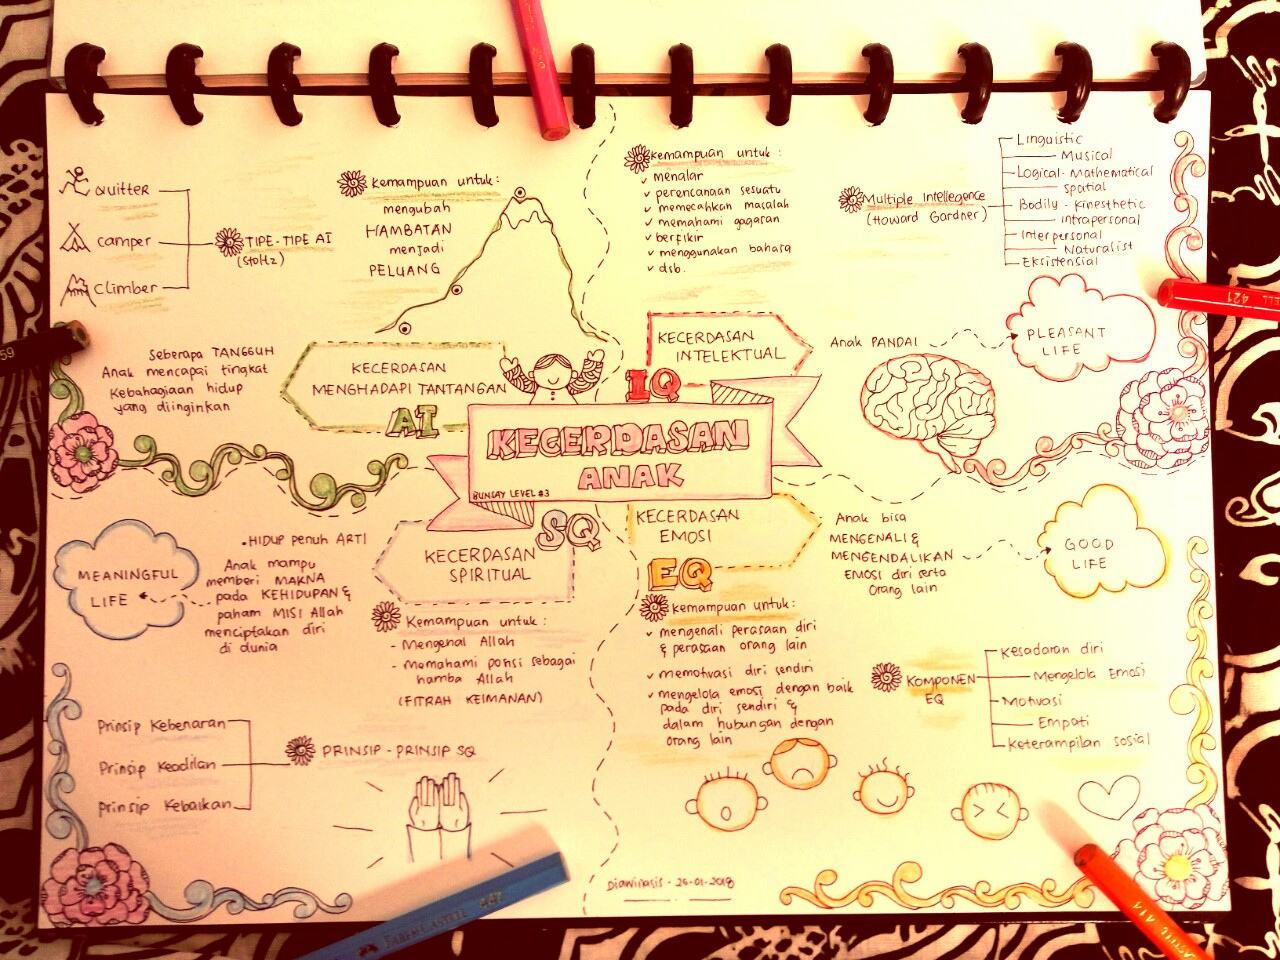 KECERDASAN
ANAK
BUNSAY LEVEL #3
Quitter
Camper
Climber
TIPE-TIPE AI
(Stoltz)
Kemampuan untuk:
mengubah
HAMBATAN
menjadi
PELUANG
Seberapa TANGGUH
Anak mencapai tingkat
Kebahagiaan hidup
yang diinginkan
KECERDASAN
MENGHADAPI TANTANGAN
AI
Kemampuan untuk :
menalar
perencanaan sesuatu
memecahkan masalah
memahami gagasan
berfikir
menggunakan bahasa
dsb.
Multiple Intellegence
(Howard Gardner)
Linguistic
Musical
Logical-Mathematical
Spatial
Bodily - Kinesthetic
Intrapersonal
Interpersonal
Naturalist
Eksistensial
KECERDASAN
INTELEKTUAL
IQ
Anak PANDAI
PLEASANT
LIFE
MEANINGFUL
LIFE
•HIDUP penuh ARTI
Anak mampu
memberi MAKNA
pada KEHIDUPAN &
paham MISI Allah
menciptakan diri
di dunia
SQ
KECERDASAN
SPIRITUAL
Kemampuan untuk :
- Mengenal Allah
- Memahami posisi sebagai
hamba Allah
(FITRAH KEIMANAN)
Prinsip Kebenaran
Prinsip Keadilan
Prinsip Kebaikan
PRINSIP - PRINSIP SQ
KECERDASAN
EMOSI
EQ
Anak bisa
MENGENALI &
MENGENDALIKAN
EMOSI diri serta
Orang lain
GOOD
LIFE
Kemampuan untuk:
mengenali perasaan diri
& perasaan orang lain
memotivasi diri sendiri
mengelola emosi dengan baik
pada diri sendiri &
dalam hubungan dengan
orang lain
KOMPONEN
EQ
Kesadaran diri
Mengelola Emosi
Motivasi
Empati
Keterampilan sosial
Diawinasis - 26-01-2018
FABER-CASTELL 447
421
414
59